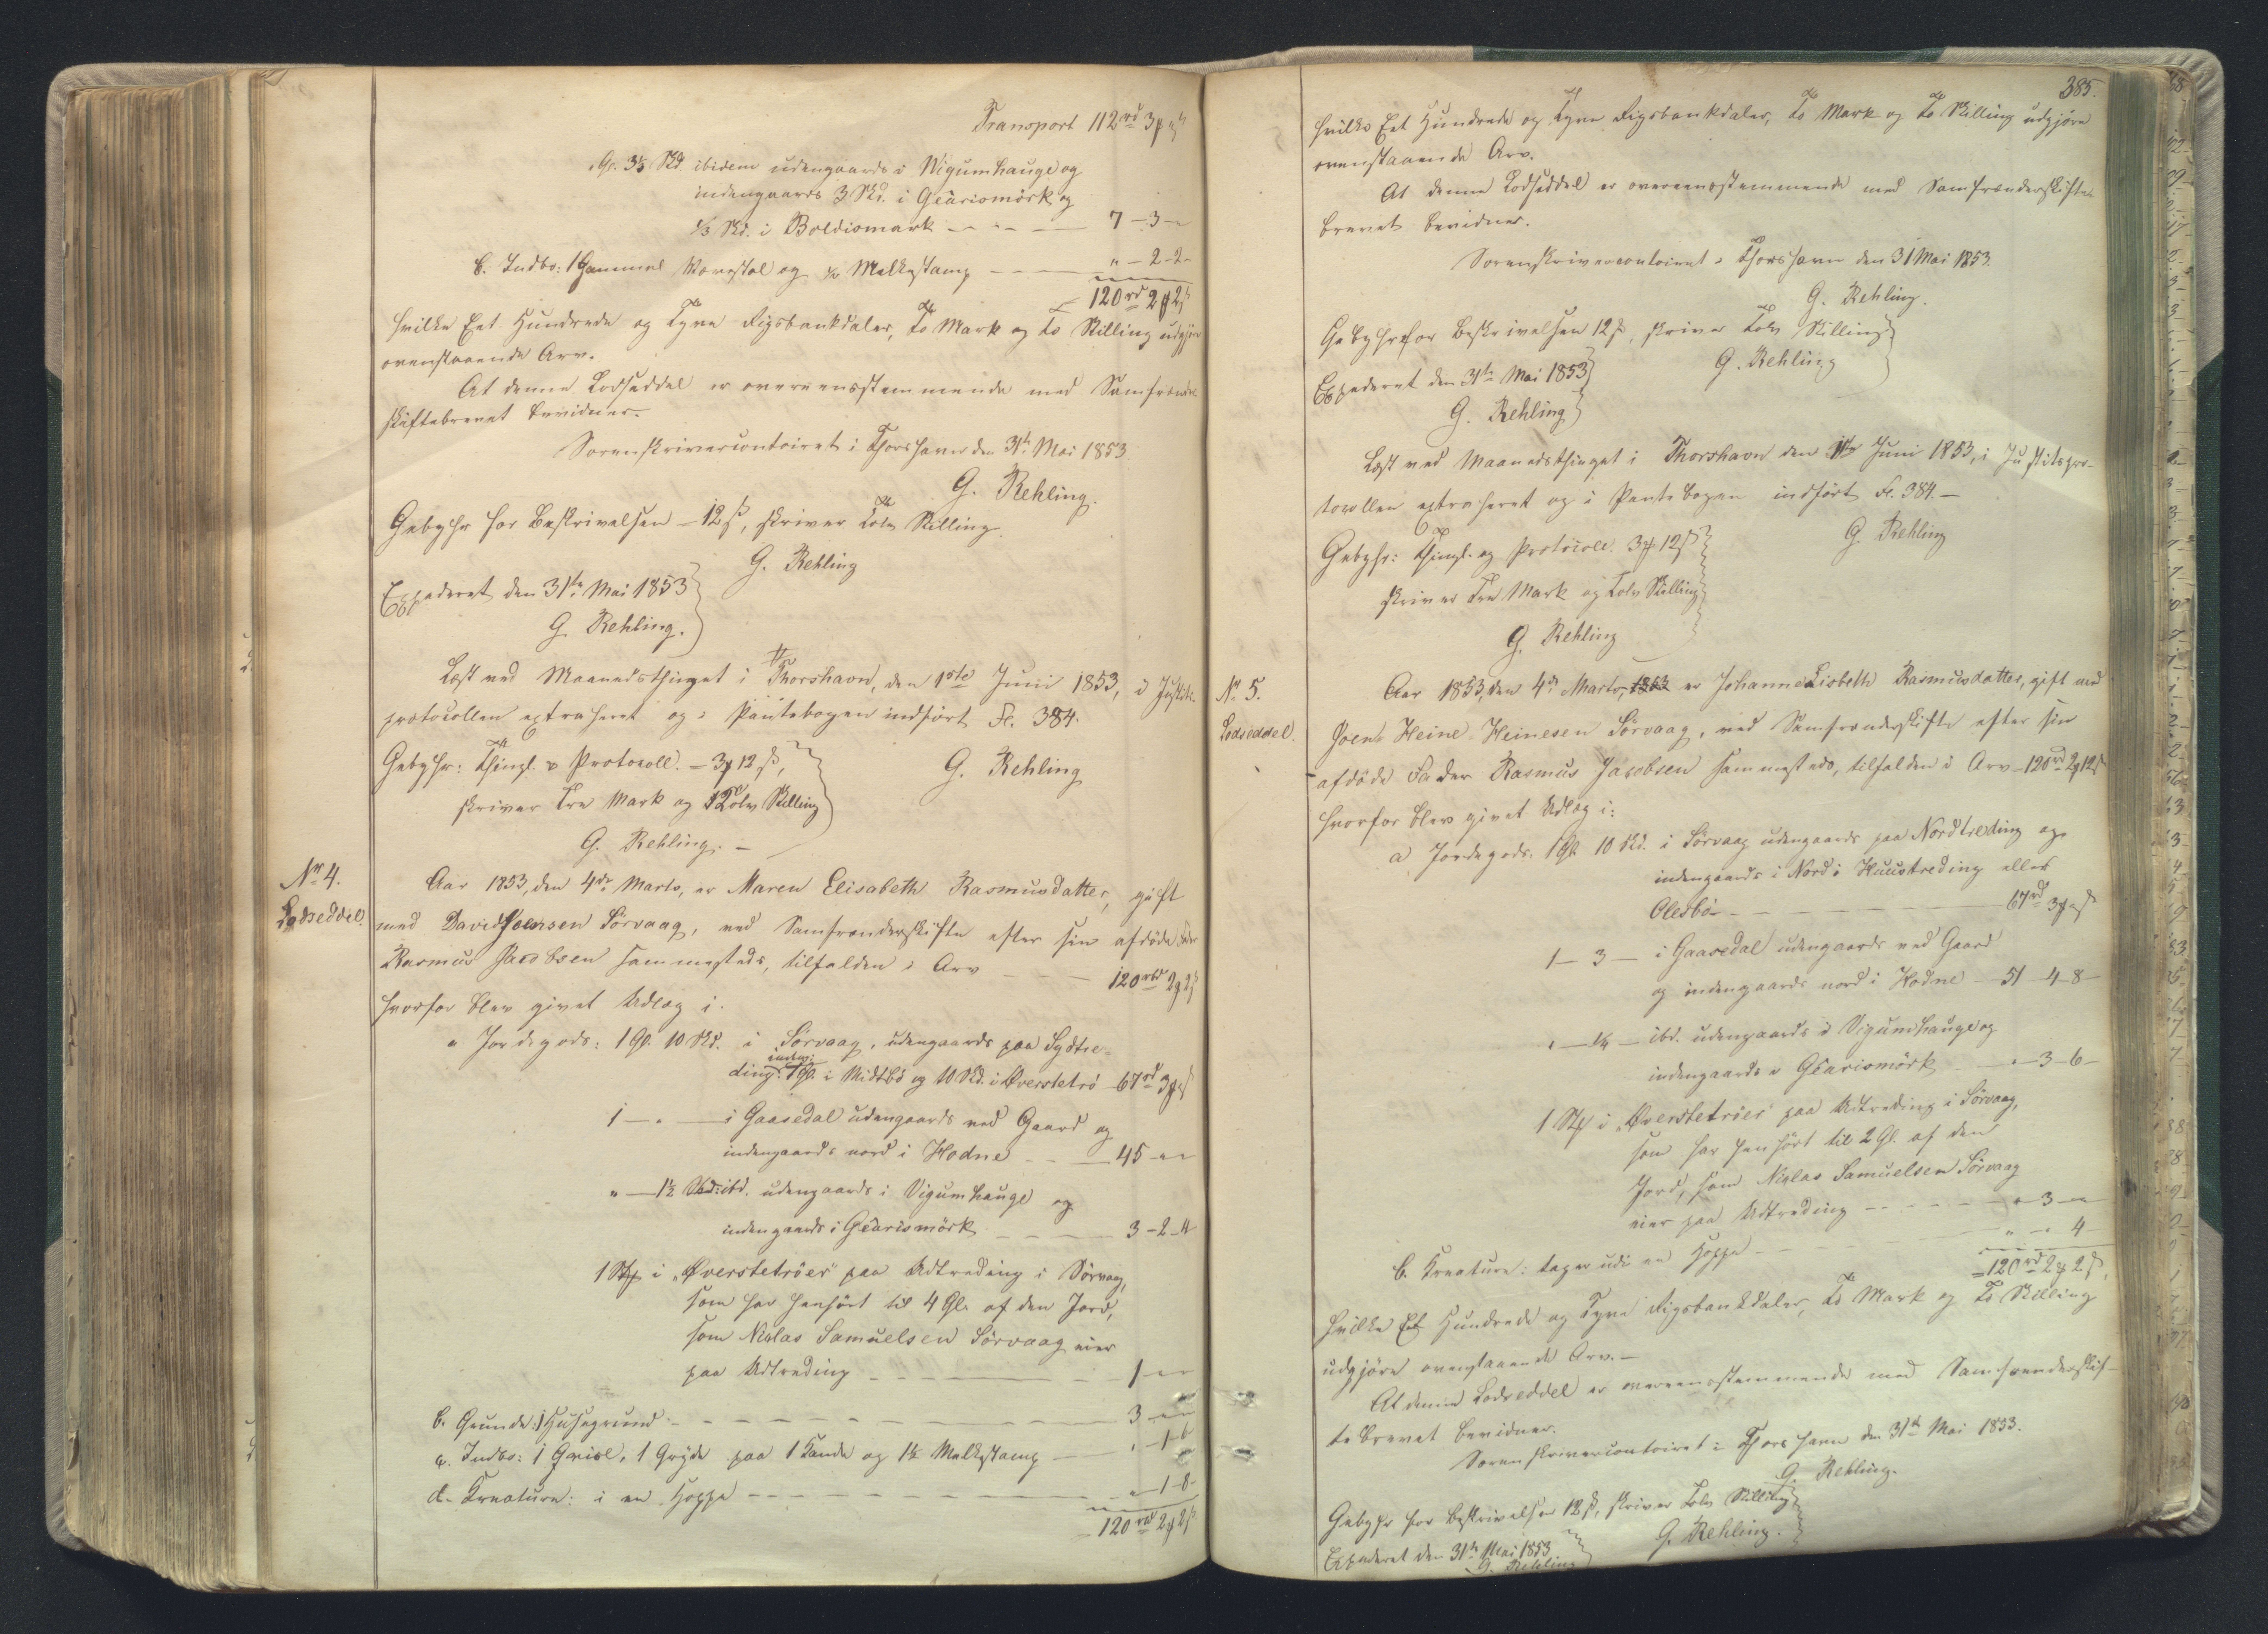 Transport 112rd 3 
Gl. 3⅓ Skd. ibidem udengaards i Wigumhauge og
indengaards 3 Skd. i Gearismörk og
⅓ Skd. i Boldismark - - - 7 - 3 -
b. Indbo: 1 Gammel Vævstol og ½ Malkestamp - - - " - 2 - 2 -
120rd 2 2 ß
hvilke Eet Hundrede og Tyve Rigsbankdaler, To Mark og To Skilling udgjöre
ovenstaaende Arv.
At denne Lodseddel er overeensstemmende med Samfrænde-
skiftebrevet bevidner.
Sorenskrivercontoiret i Thorshavn den 31te Mai 1853
G. Rehling.
Gebyhr for Beskrivelsen - 12 ß, skriver Tolv Skilling.
G. Rehling
Expederet den 31te Mai 1853
G. Rehling.
Læst ved Maanedsthinget i Thorshavn, den 1ste Juni 1853, i Justits-
protocollen extraheret og i Pantebogen indfört Fl. 384.
Gebyhr: Thingl. og Protocoll. - 3 12 ß,
G. Rehling
skriver Tre Mark og Tolv Skilling
G. Rehling. -
Nr 4.
Lodseddel.
Aar 1853, den 4de Marts, er Maren Elisabeth Rasmusdatter, gift
med David Joensen Sörvaag, ved Samfrænderskifte efter sin afdöde Fader
Rasmus Jacobsen sammesteds, tilfalden i Arv - - 120rbd 2 2 ß
hvorfor blev givet Udlæg i.
a Jordegods: 1 Gl. 10 Skd. i Sörvaag, udengaards paa Sydtre-
ding, indeng: 1 Gl. i Midtbö og 10 Skd. i Øverstetrö - 67rd 3
1 - " - i Gaasedal udengaards ved Gaard og
indengaards nord i Hodne - - - 45 - " -
" - 1½ Skd: ibd. udengaards i Vigumhauge og
indengaards i Gearismörk - - - 3 - 2 - 4
1 Stk i "Øverstetröer" paa Udtreding i Sörvaag,
som har henhört til 4 Gl. af den Jord,
som Niclas Samuelsen Sörvaag eier
paa Udtreding - - - 1 - " -
b. Grunde: 1 Huusgrund - - - 3 - " -
c. Indbo: 1 1 Gryde paa 1 Kande og 1½ Malkestamp - " - 1 - 6
d. Kreature: i en Hoppe - - - " - 1 - 8 -
120rd 2 2 ß
385.
hvilke Eet Hundrede og Tyve Rigsbankdaler, To Mark og To Skilling udgjöre
ovenstaaende Arv.
At denne Lodseddel er overeensstemmende med Samfrænderskifte-
brevet bevidner.
Sorenskrivercontoiret i Thorshavn den 31 Mai 1853.
G. Rehling.
Gebyhr for Beskrivelsen 12 ß, skriver Tolv Skilling.
G. Rehling
Expederet den 31te Mai 1853
G. Rehling
Læst ved Maanedsthinget i Thorshavn den 1ste Juni 1853, i Justitspro-
tocollen extraheret og i Pantebogen indfört Fl. 384. -
G. Rehling
Gebyhr: Thingl. og Protocoll. 3 12 ß
skriver Tre Mark og Tolv Skilling
G. Rehling
Nr 5.
Lodseddel.
Aar 1853, den 4de Marts, 1853 er Johanne Lisbeth Rasmusdatter, gift med
Joen Heine Heinesen Sörvaag, ved Samfrænderskifte efter sin
afdöde Fader Rasmus Jacobsen sammesteds, tilfalden i Arv - 120rd 2 2 ß
hvorfor blev givet Udlæg i:
a Jordegods. 1 Gl. 10 Skd. i Sörvaag udengaards paa Nordtreding og
indengaards i Nord i Huustreding eller
Olesbö - - - 67rd 3
1 - 3 - i Gaasedal udengaards ved Gaard
og indengaards nord i Hodne - 51 - 4 - 8 -
" - ¼ - ibd. udengaards i Vigumhauge og
indengaards i Gearismörk - " - 3 - 6 -
1 Stk i "Øverstetröer" paa Udtreding i Sörvaag,
som har henhört til 2 Gl. af den
Jord, som Niclas Samuelsen Sörvaag
eier paa Udtreding - - - " - 3 - " -
b. Kreature: tager udi en Hoppe - - - " - " - 4 -
120rd 2 2 ß,
hvilke Eet Hundrede og Tyve Rigsbankdaler, To Mark og To Skilling
udgjöre ovenstaaende Arv. -
At denne Lodseddel er overeensstemmende med Samfrænderskif-
tebrevet bevidner.
Sorenskrivercontoiret i Thorshavn den 31te Mai 1853.
G. Rehling.
Gebyhr for Beskrivelsen 12 ß, skriver Tolv Skilling
G. Rehling.
Expederet den 31te Mai 1853
G. Rehling